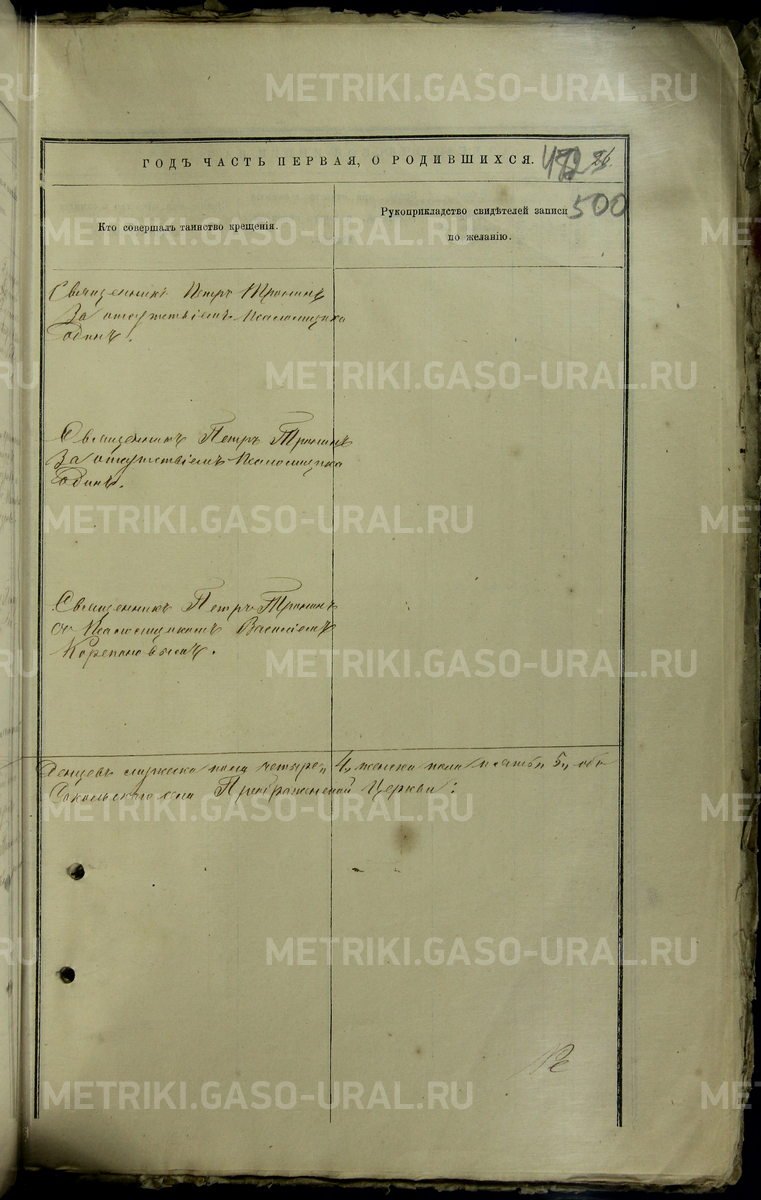 METRIKI.GASO-URAL.RU
ГОДЪ ЧАСТЬ ПЕРВАЯ, О РОДИВШИХСЯ.
500
Кто совершалъ таинство крещенія.
Рукоприкладство свидѣтелей записи
по желанію.
Священникъ Петръ Тронинъ
За отсутствіемъ Псаломщика
Одинъ.
Священникъ Петръ Тронинъ
За отсутствіемъ Псаломщика
Одинъ.
Священникъ Петръ Тронинъ
съ Псаломщикомъ Василіемъ
Корепановымъ.
мужеска пола четыре 4, женска пола пять 5, обо
села Преображенской Церкви: